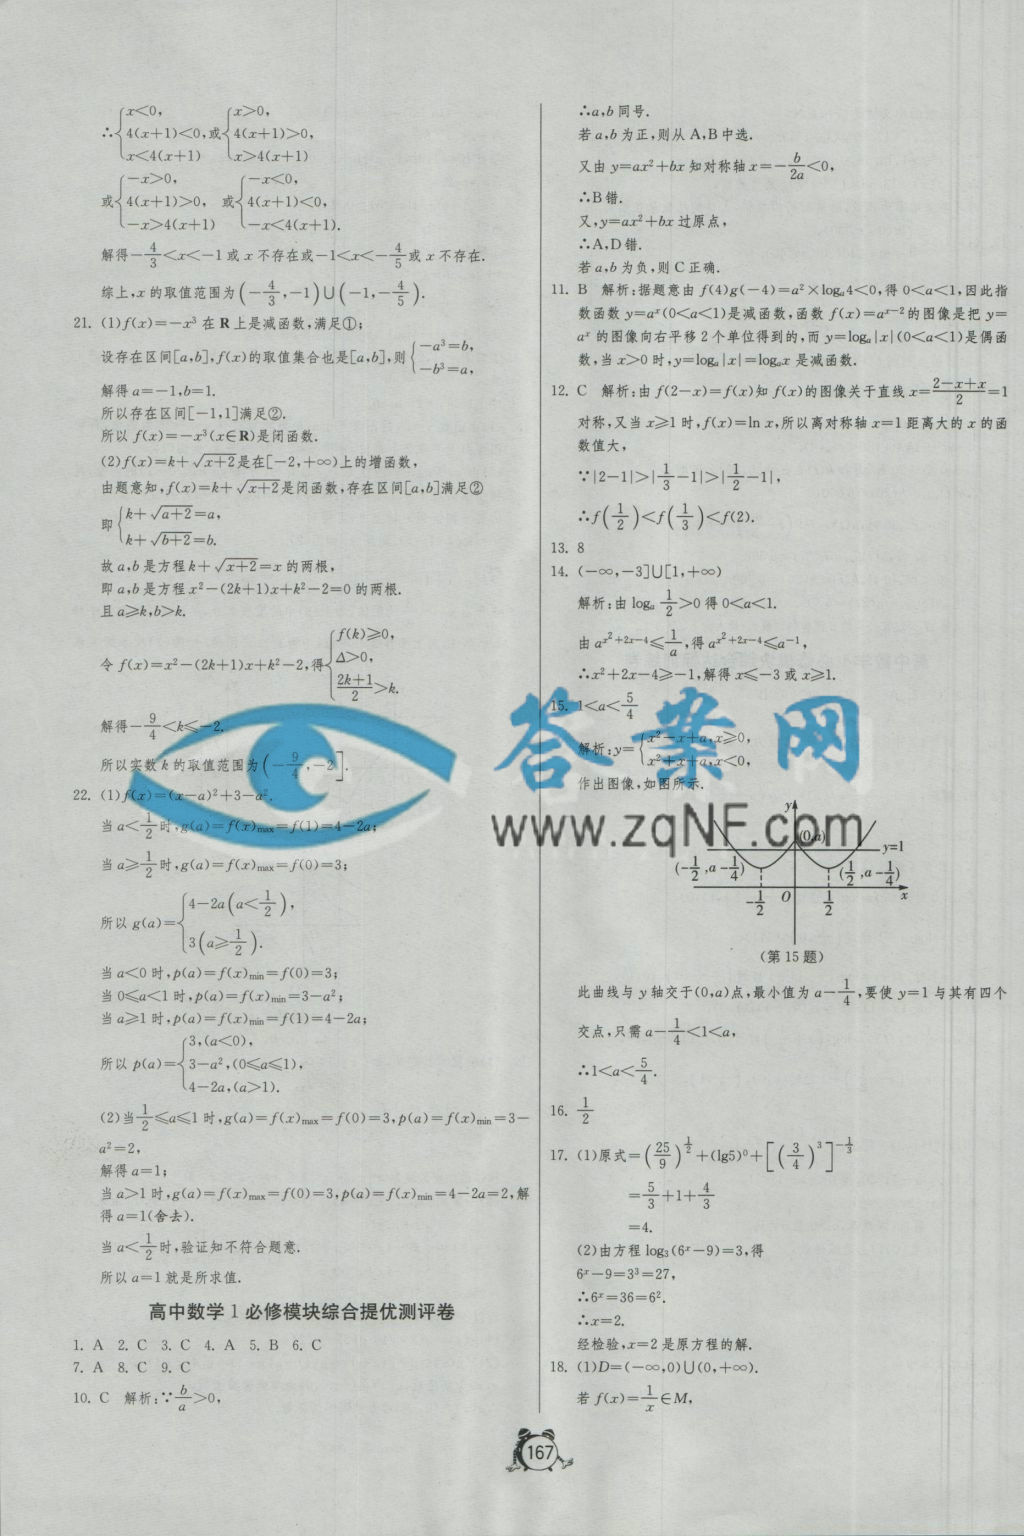 ∴{x<0, 4(x+1)<0, x<4(x+1) 或{x>0, 4(x+1)>0, x>4(x+1)
或{-x>0, 4(x+1)>0, -x>4(x+1) 或{-x<0, 4(x+1)<0, -x<4(x+1).
解得-4/3<x<-1或x不存在或-1<x<-4/5或x不存在.
综上,x的取值范围为(-4/3,-1)∪(-1,-4/5).
21. (1)f(x)=-x³在R上是减函数,满足①;
设存在区间[a,b],f(x)的取值集合也是[a,b],则{-a³=b, -b³=a,
解得a=-1,b=1.
所以存在区间[-1,1]满足②.
所以f(x)=-x³(x∈R)是闭函数.
(2)f(x)=k+√(x+2)是在[-2,+∞)上的增函数,
由题意知,f(x)=k+√(x+2)是闭函数,存在区间[a,b]满足②
即{k+√(a+2)=a, k+√(b+2)=b.
故a,b是方程k+√(x+2)=x的两根,
即a,b是方程x²-(2k+1)x+k²-2=0的两根.
且a≥k,b>k.
令f(x)=x²-(2k+1)x+k²-2,得{f(k)≥0, Δ>0, (2k+1)/2>k.
解得-9/4<k≤-2.
所以实数k的取值范围为(-9/4,-2].
22. (1)f(x)=(x-a)²+3-a².
当a<1/2时,g(a)=f(x)max=f(1)=4-2a;
当a≥1/2时,g(a)=f(x)max=f(0)=3;
所以g(a)={4-2a(a<1/2), 3(a≥1/2).
当a<0时,p(a)=f(x)min=f(0)=3;
当0≤a<1时,p(a)=f(x)min=3-a²;
当a≥1时,p(a)=f(x)min=f(1)=4-2a;
所以p(a)={3,(a<0), 3-a²,(0≤a≤1), 4-2a,(a>1).
(2)当1/2≤a≤1时,g(a)=f(x)max=f(0)=3,p(a)=f(x)min=3-
a²=2,
解得a=1;
当a>1时,g(a)=f(x)max=f(0)=3,p(a)=f(x)min=4-2a=2,解
得a=1(舍去).
当a<1/2时,验证知不符合题意.
所以a=1就是所求值.
高中数学1必修模块综合提优测评卷
1. A 2. C 3. C 4. A 5. B 6. C
7. A 8. C 9. C
10. C 解析:∵b/a>0,
∴a,b同号.
若a,b为正,则从A,B中选.
又由y=ax²+bx知对称轴x=-b/2a<0,
∴B错.
又,y=ax²+bx过原点,
∴A,D错.
若a,b为负,则C正确.
11. B 解析:据题意由f(4)g(-4)=a²×logₐ4<0,得0<a<1,因此指
数函数y=aˣ(0<a<1)是减函数,函数f(x)=aˣ⁻²的图像是把y=
aˣ的图像向右平移2个单位得到的,而y=logₐ|x|(0<a<1)是偶函
数,当x>0时,y=logₐ|x|=logₐx是减函数.
12. C 解析:由f(2-x)=f(x)知f(x)的图像关于直线x=(2-x+x)/2=1
对称,又当x≥1时,f(x)=ln x,所以离对称轴x=1距离大的x的函
数值大,
∵|2-1|>|1/3-1|>|1/2-1|,
∴f(1/2)<f(1/3)<f(2).
13. 8
14. (-∞,-3]∪[1,+∞)
解析:由logₐ 1/2>0得0<a<1.
由a^(x²+2x-4)≤1/a,得a^(x²+2x-4)≤a⁻¹,
∴x²+2x-4≥-1,解得x≤-3或x≥1.
15. 1<a<5/4
解析:y={x²-x+a,x≥0, x²+x+a,x<0,
作出图像,如图所示.
答案网
www.zqNF.com
y
(0,a)
y=1
(-1/2,a-1/4)
(1/2,a-1/4)
-1/2 O 1/2 x
(第15题)
此曲线与y轴交于(0,a)点,最小值为a-1/4,要使y=1与其有四个
交点,只需a-1/4<1<a,
∴1<a<5/4.
16. 1/2
17. (1)原式=(25/9)^(1/2)+(lg5)⁰+[(3/4)³]^(-1/3)
=5/3+1+4/3
=4.
(2)由方程log₃(6ˣ-9)=3,得
6ˣ-9=3³=27,
∴6ˣ=36=6².
∴x=2.
经检验,x=2是原方程的解.
18. (1)D=(-∞,0)∪(0,+∞).
若f(x)=1/x∈M,
167